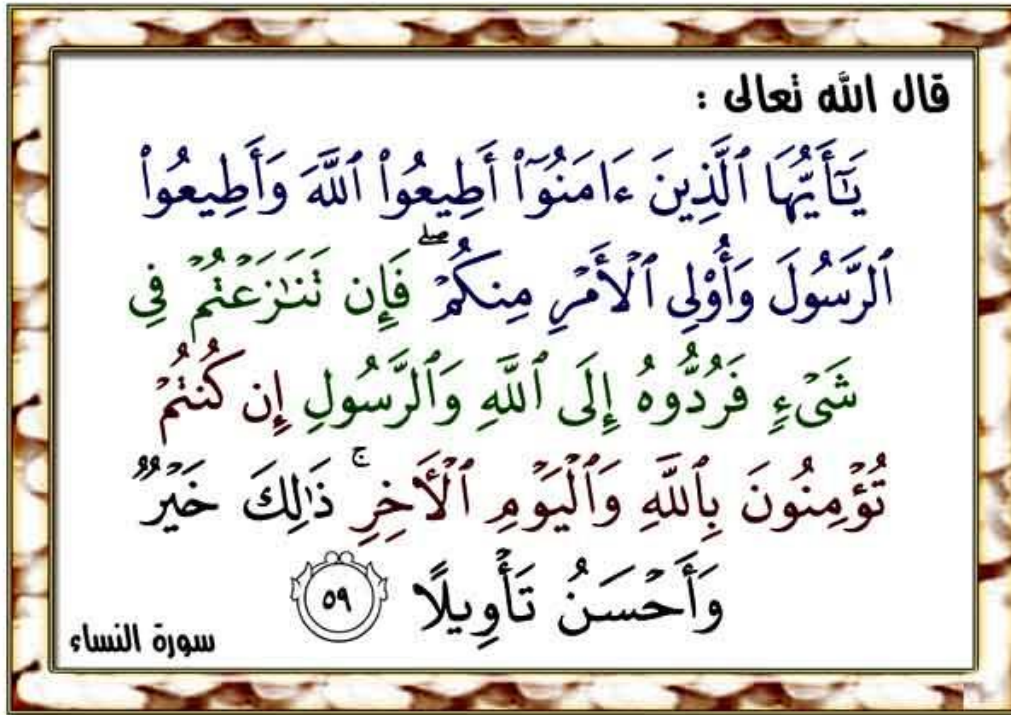 قال الله تعالى :
يَـٰٓأَيُّهَا ٱلَّذِينَ ءَامَنُوٓا۟ أَطِيعُوا۟ ٱللَّهَ وَأَطِيعُوا۟
ٱلرَّسُولَ وَأُو۟لِى ٱلْأَمْرِ مِنكُمْ ۖ فَإِن تَنَـٰزَعْتُمْ فِى
شَىْءٍ فَرُدُّوهُ إِلَى ٱللَّهِ وَٱلرَّسُولِ إِن كُنتُمْ
تُؤْمِنُونَ بِٱللَّهِ وَٱلْيَوْمِ ٱلْأَخِرِ ۚ ذَٰلِكَ خَيْرٌ
وَأَحْسَنُ تَأْوِيلًا ٥٩
سورة النساء